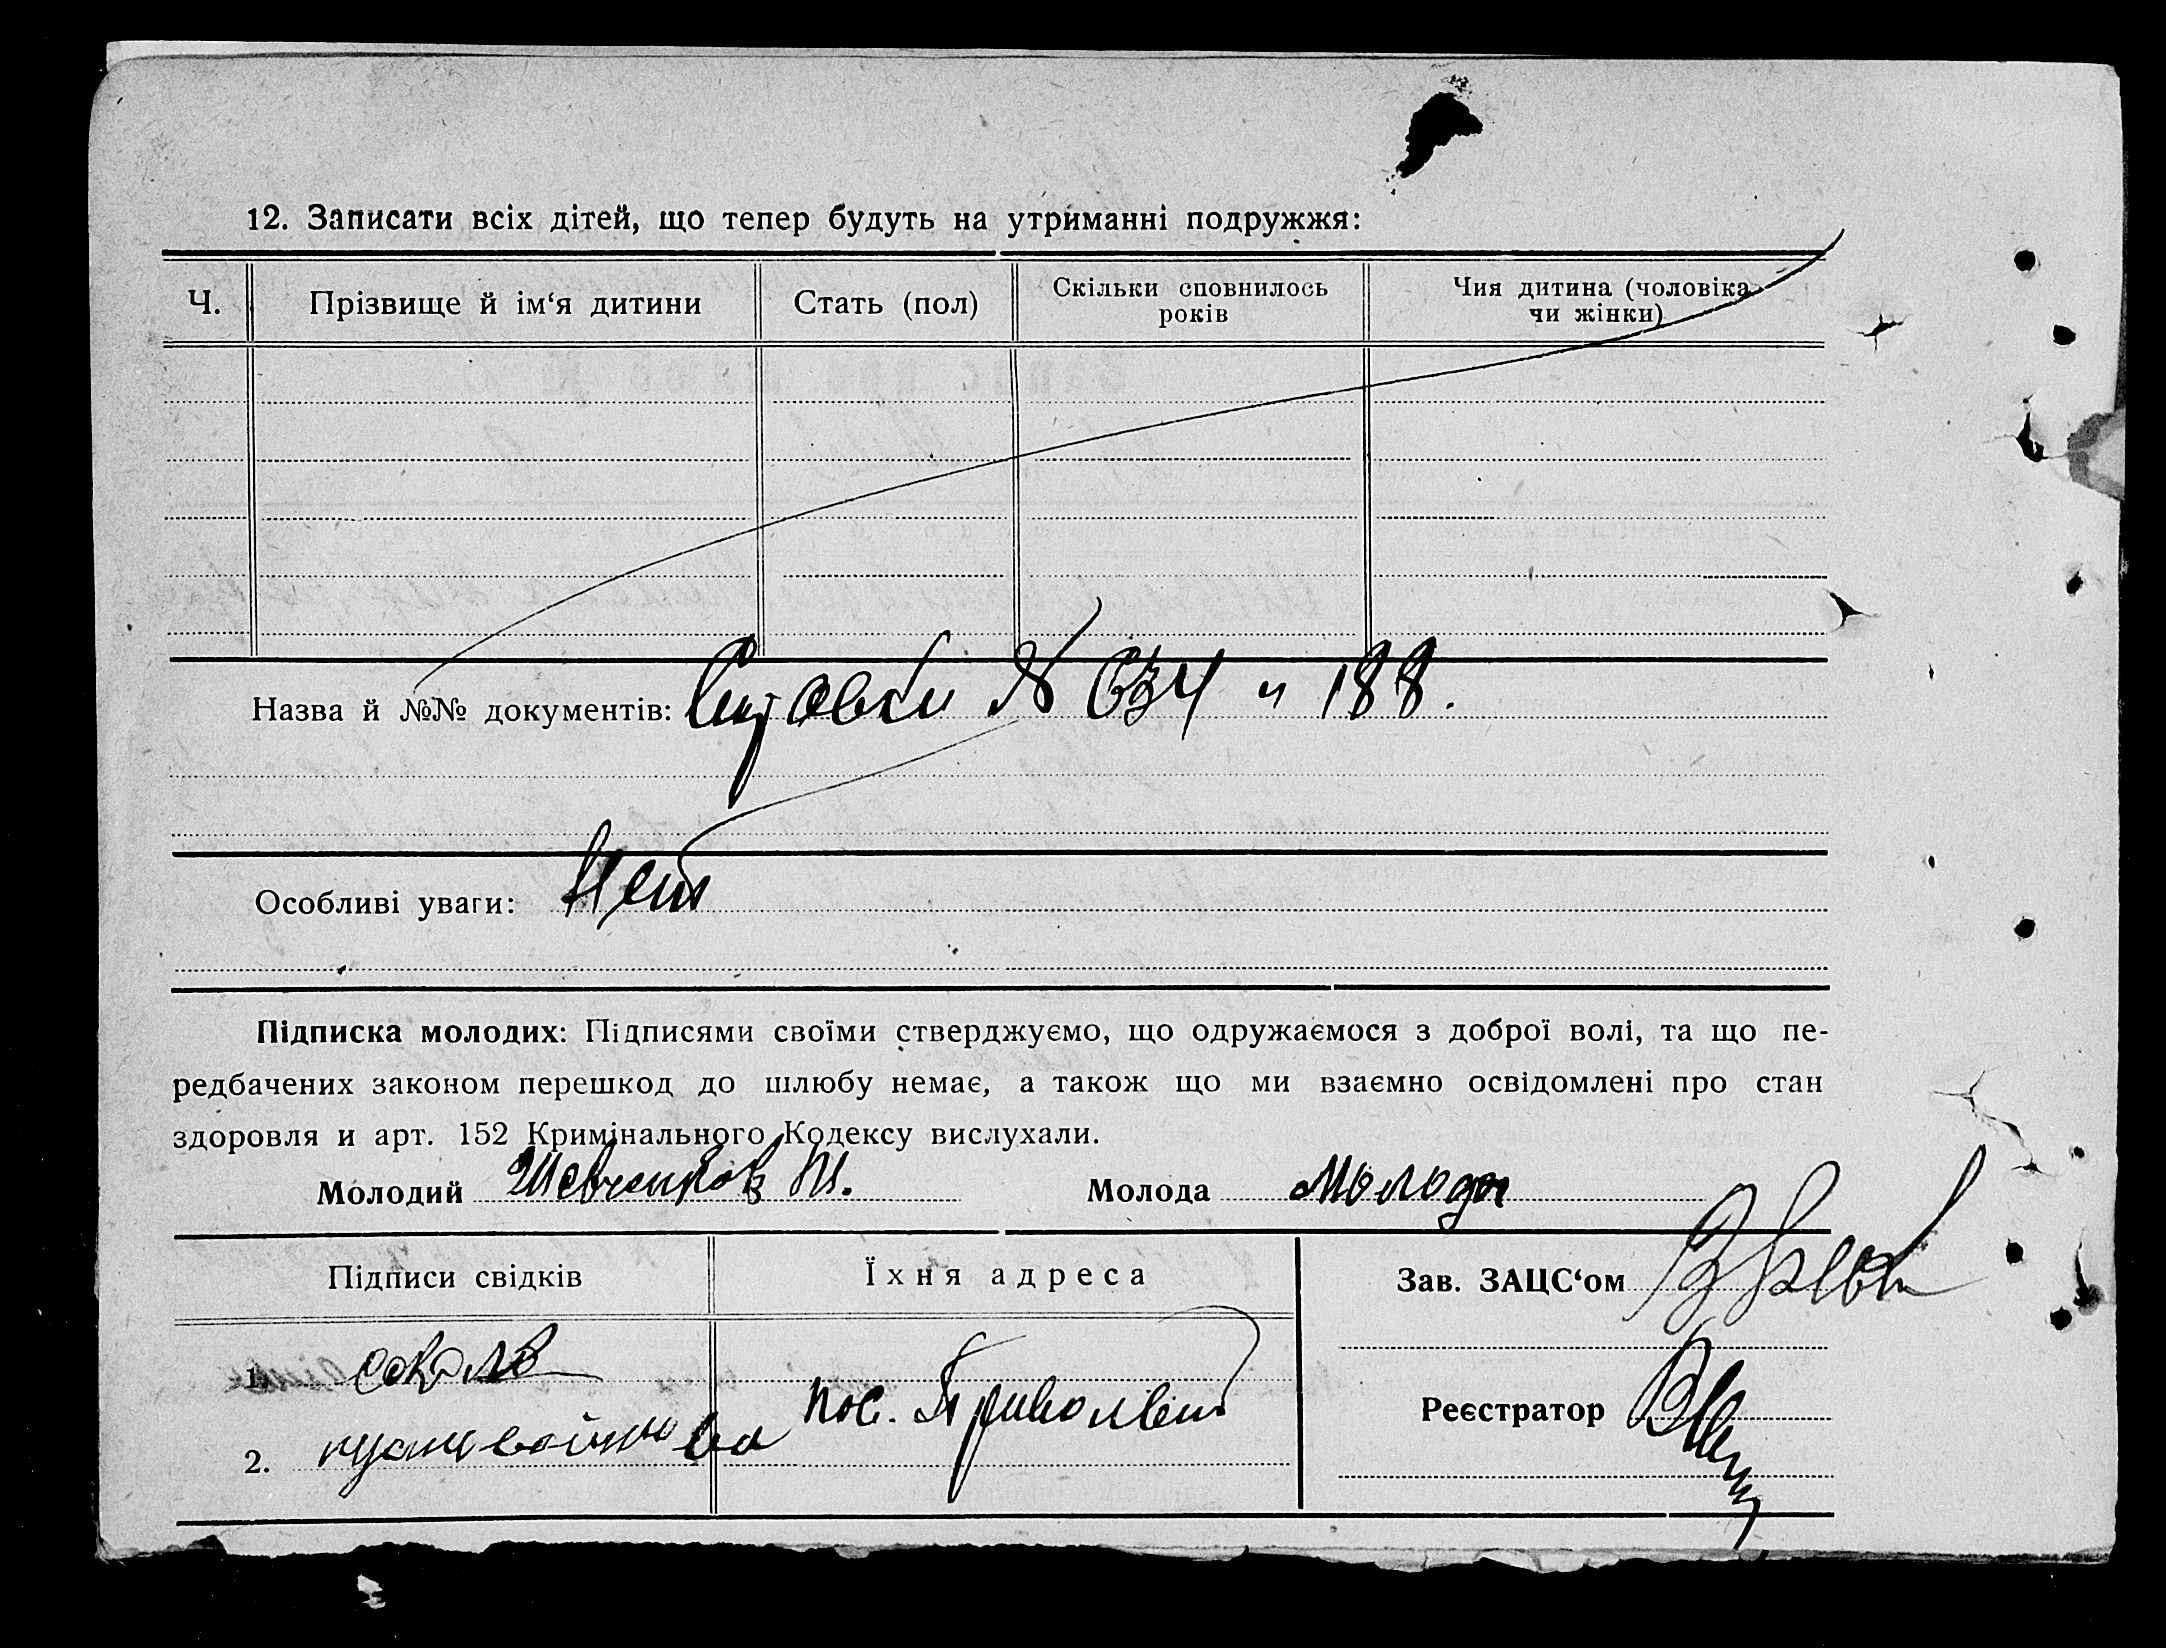 12. Записати всіх дітей, що тепер будуть на утриманні подружжя:
Ч. Прізвище й ім‘я дитини Стать (пол) Скільки сповнилось років Чия дитина (чоловіка чи жінки)
Назва й №№ документів: Справки № 634 и 188.
Особливі уваги: Нет
Підписка молодих: Підписями своїми стверджуємо, що одружаємося з доброї волі, та що пе-
редбачених законом перешкод до шлюбу немає, а також що ми взаємно освідомлені про стан
здоровля и арт. 152 Кримінального Кодексу вислухали.
Молодий Шевченков Молода
Підписи свідків Їхня адреса Зав. ЗАЦС‘ом
1.
пос. Приволье
Реєстратор
2.